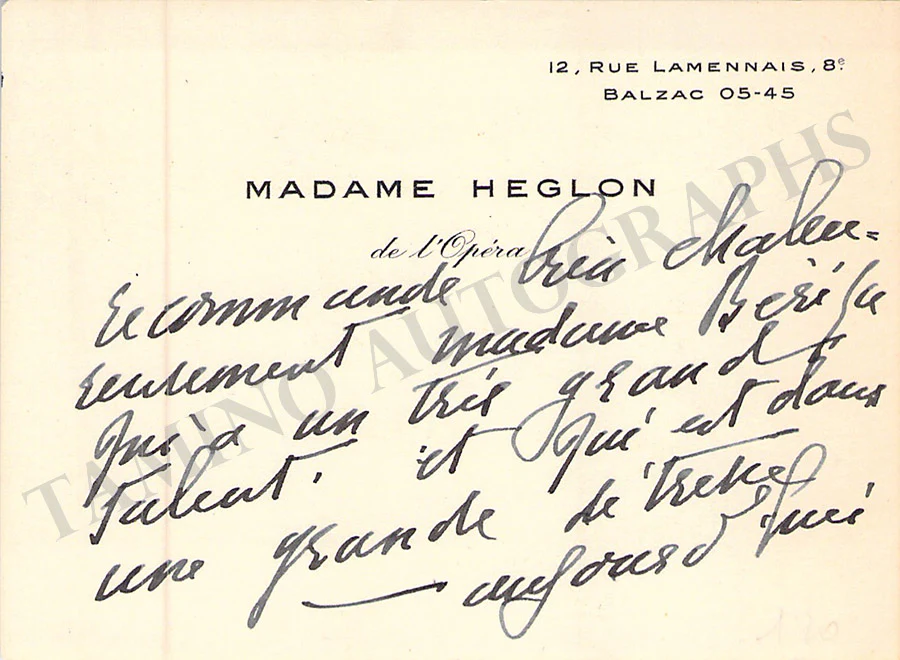 12, RUE LAMENNAIS, 8e.
BALZAC 05-45
MADAME HEGLON
de l'Opéra
recommande très chaleu=
reusement madame
qui a un très grand
talent. et qui est dans
une grande détresse
aujourd'hui
TAMINO AUTOGRAPHS